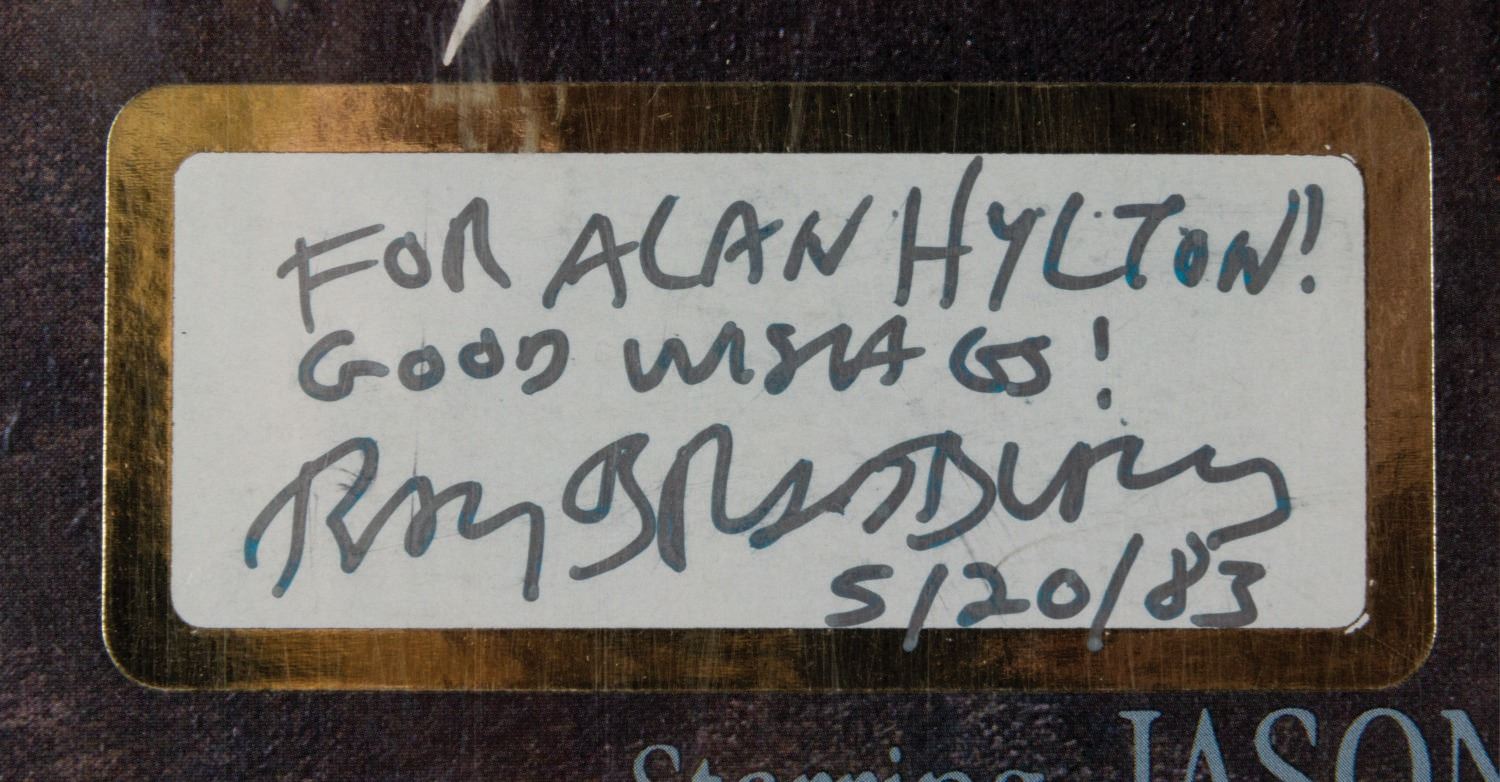 FOR ALAN HYLTON!
GOOD WISHES!
Ray Bradbury
5/20/83
Starring JASON